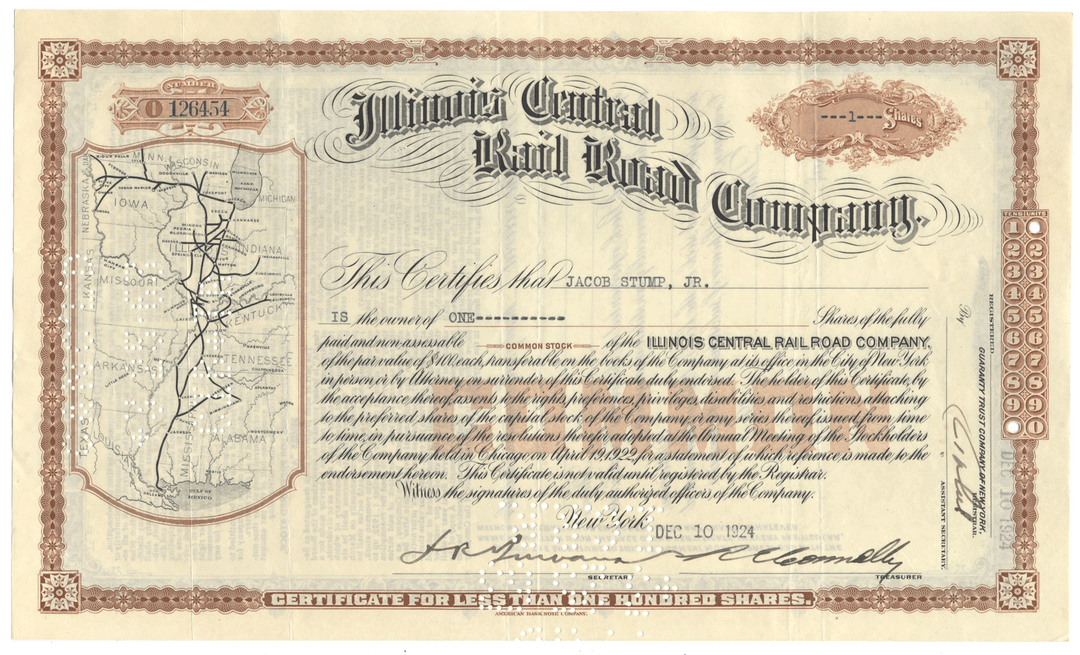 NUMBER
O 126454
Illinois Central
Rail Road
Company.
---1--- Shares
TENS UNITS
1 1
2 2
3 3
4 4
5 5
6 6
7 7
8 8
9 9
0 0
MINN.
WISCONSIN
MICHIGAN
IOWA
NEBRASKA
ILL
INDIANA
KANSAS
MISSOURI
KENTUCKY
TENNESSEE
ARKANSAS
TEXAS
LOUIS
MISSISS
ALABAMA
GULF OF
MEXICO
This Certifies that JACOB STUMP, JR.
IS the owner of ONE----------- Shares of the fully
paid and non-assessable COMMON STOCK of the ILLINOIS CENTRAL RAIL ROAD COMPANY,
of the par value of $100 each, transferable on the books of the Company at its office in the City of New York
in person or by Attorney on surrender of this Certificate duly endorsed. The holder of this Certificate, by
the acceptance thereof, assents to the rights, preferences, privileges, disabilities and restrictions attaching
to the preferred shares of the capital stock of the Company, or any series thereof, issued from time
to time, in pursuance of the resolutions therefor adopted at the Annual Meeting of the Stockholders
of the Company held in Chicago on April 19, 1922, for a statement of which reference is made to the
endorsement hereon. This Certificate is not valid until registered by the Registrar.
Witness the signatures of the duly authorized officers of the Company.
New York, DEC 10 1924
SECRETARY
TREASURER
REGISTERED
GUARANTY TRUST COMPANY OF NEW YORK,
REGISTRAR.
By
ASSISTANT SECRETARY.
DEC 10 1924
CERTIFICATE FOR LESS THAN ONE HUNDRED SHARES.
AMERICAN BANK NOTE COMPANY.